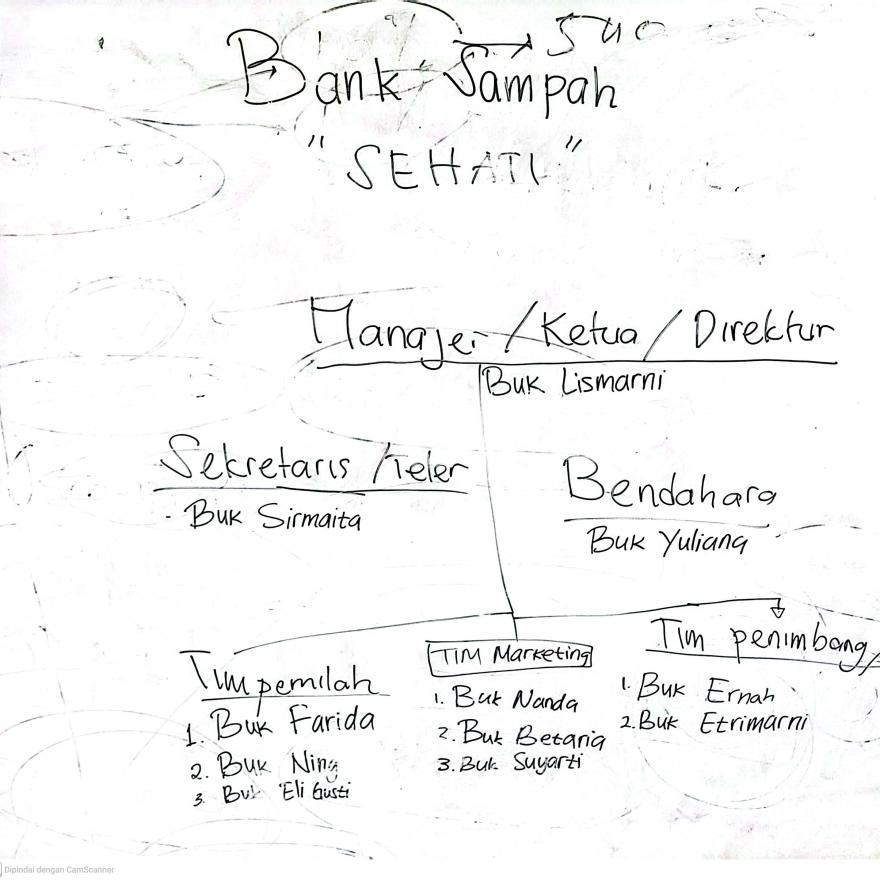 Bank Sampah
" SEHATI "
Manajer / Ketua / Direktur
Buk Lismarni
Sekretaris / Teler
- Buk Sirmaita
Bendahara
Buk Yuliana
Tim pemilah
1. Buk Farida
2. Buk Ning
3. Buk Eli Gusti
TIM Marketing
1. Buk Nanda
2. Buk Betaria
3. Buk Suyarti
Tim penimbang
1. Buk Ernah
2. Buk Etrimarni
Dipindai dengan CamScanner